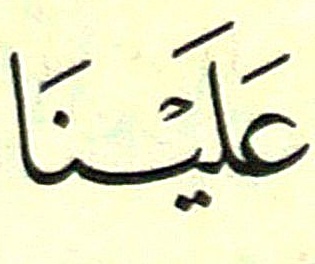 عَلَيْنَا